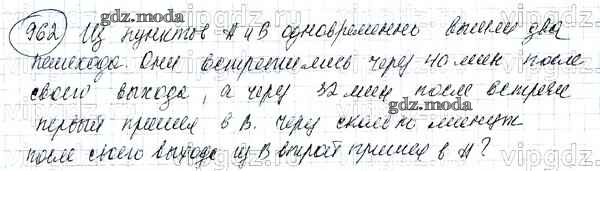 gdz.moda
962 Из пунктов А и В одновременно вышли два
gdz.moda
пешехода. Они встретились через 40 мин после
своего выхода, а через 32 мин после встречи
gdz.moda
первый пришел в В. Через сколько минут
после своего выхода из В второй пришел в А?
vipgdz.com